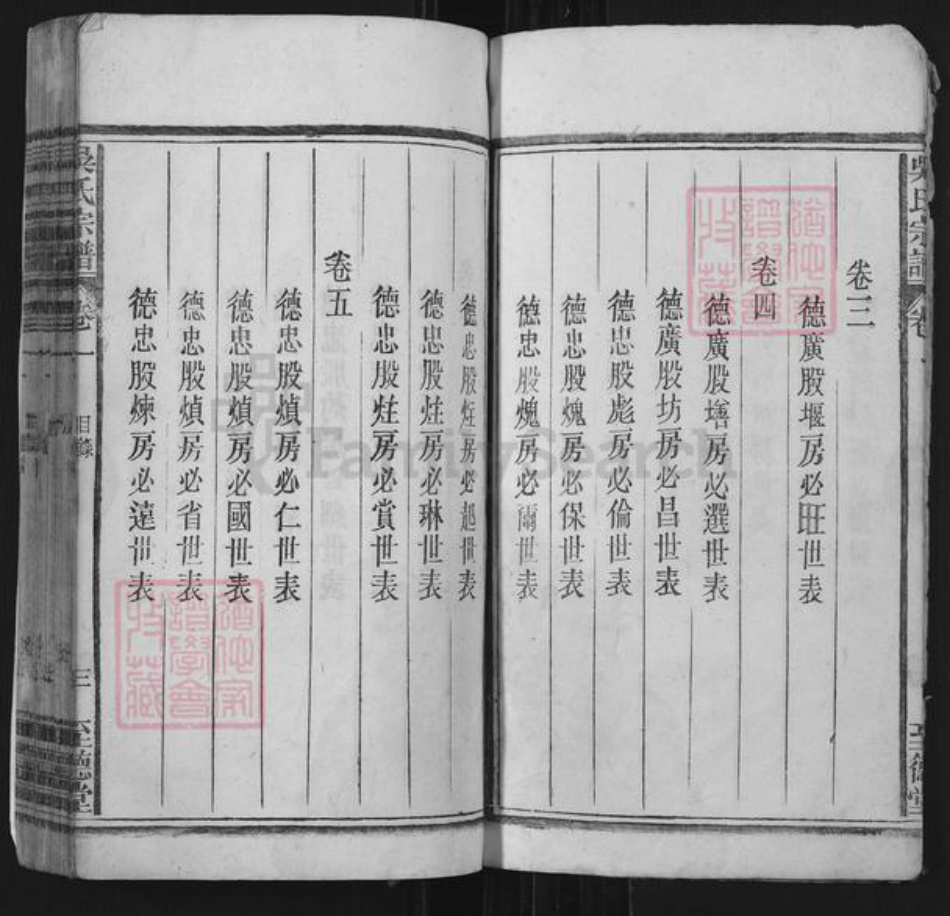 吳氏宗譜
卷
至德堂
卷三
德廣股堰房必旺世表
卷四
德廣股墡房必選世表
德廣股坊房必昌世表
德忠股彪房必倫世表
德忠股煷房必保世表
德忠股煷房必爾世表
德忠股炷房必起世表
德忠股炷房必琳世表
德忠股炷房必賞世表
卷五
德忠股熕房必仁世表
德忠股熕房必國世表
德忠股熕房必省世表
德忠股煉房必遠世表
吳氏宗譜
卷一
目錄
三
至德堂
譜學會
收藏
FamilySearch